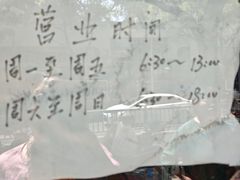 营业时间
周一至周五 6:30~13:00
周六至周日 6:30~18:00